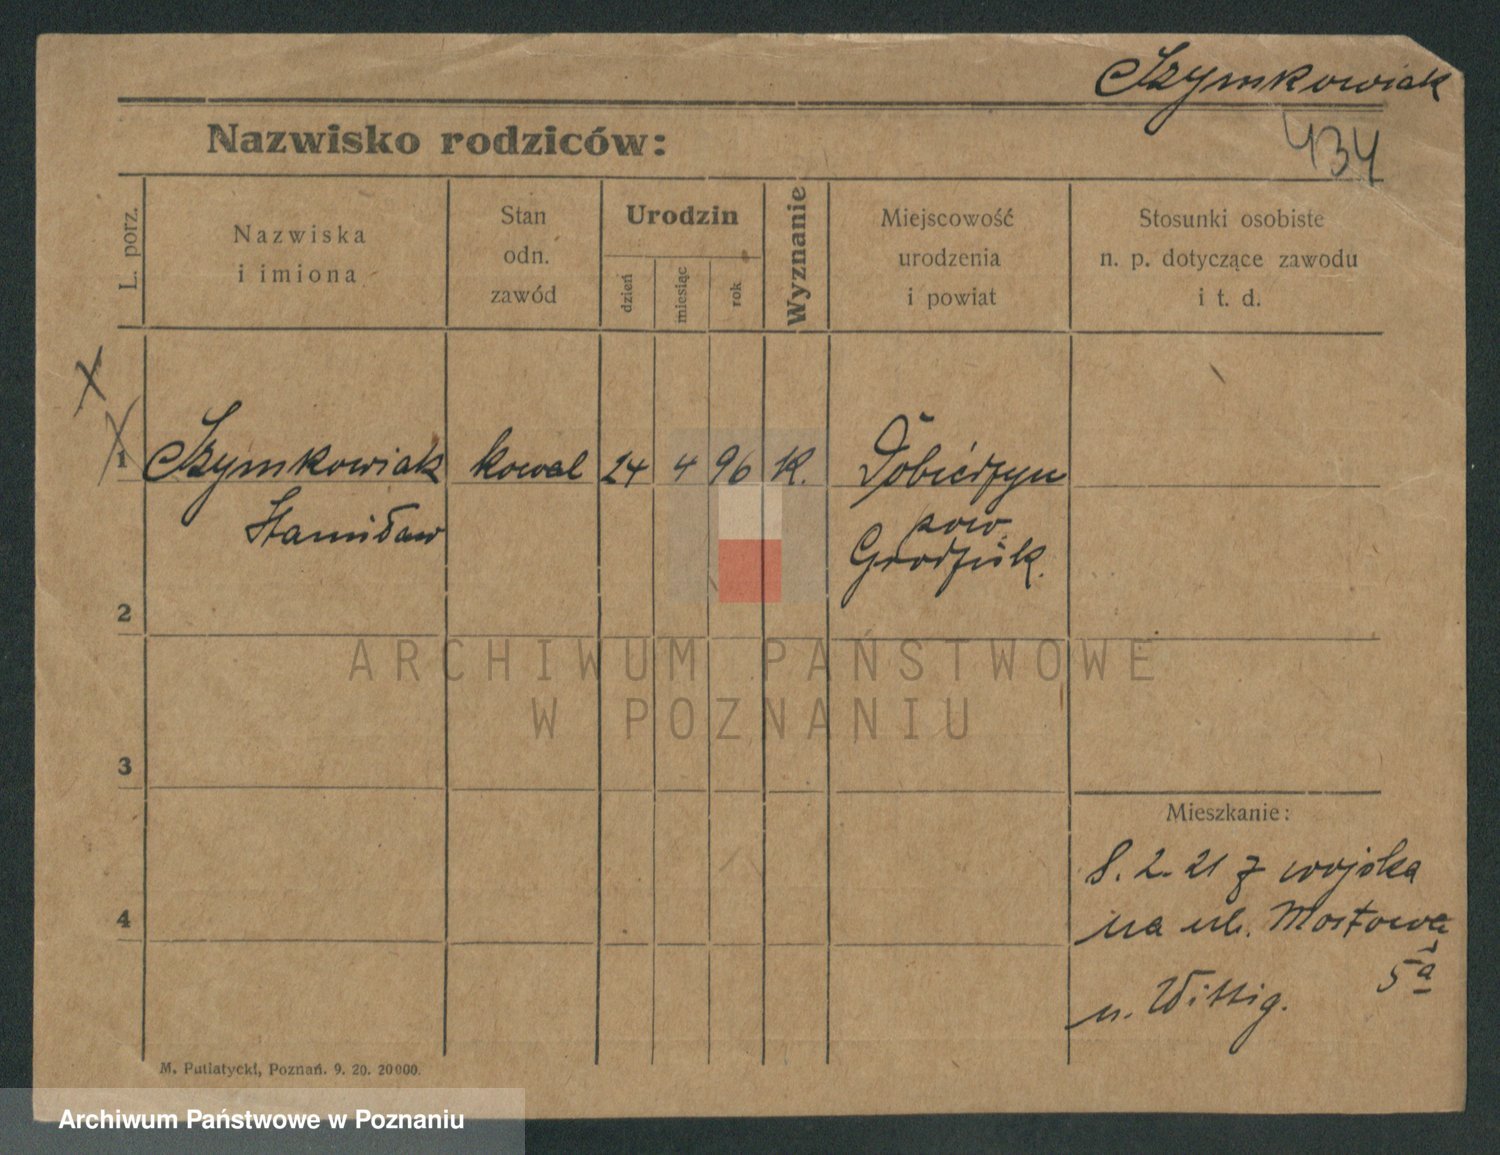 Szymkowiak
434
Nazwisko rodziców:
L. porz.
Nazwiska
i imiona
Stan
odn.
zawód
Urodzin
dzień
miesiąc
rok
Wyznanie
Miejscowość
urodzenia
i powiat
Stosunki osobiste
n. p. dotyczące zawodu
i t. d.
X
1 Szymkowiak kowal 24 4 96 K. Dobieżyn
Stanisław pow.
Grodzisk.
2
ARCHIWUM PAŃSTWOWE
W POZNANIU
3
Mieszkanie:
8. 2. 21 z wojska
4
na ul. Mostową
5a
u. Wittig.
M. Putiatycki, Poznań. 9. 20. 20000.
Archiwum Państwowe w Poznaniu